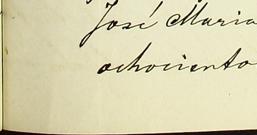 José Maria
ochociento